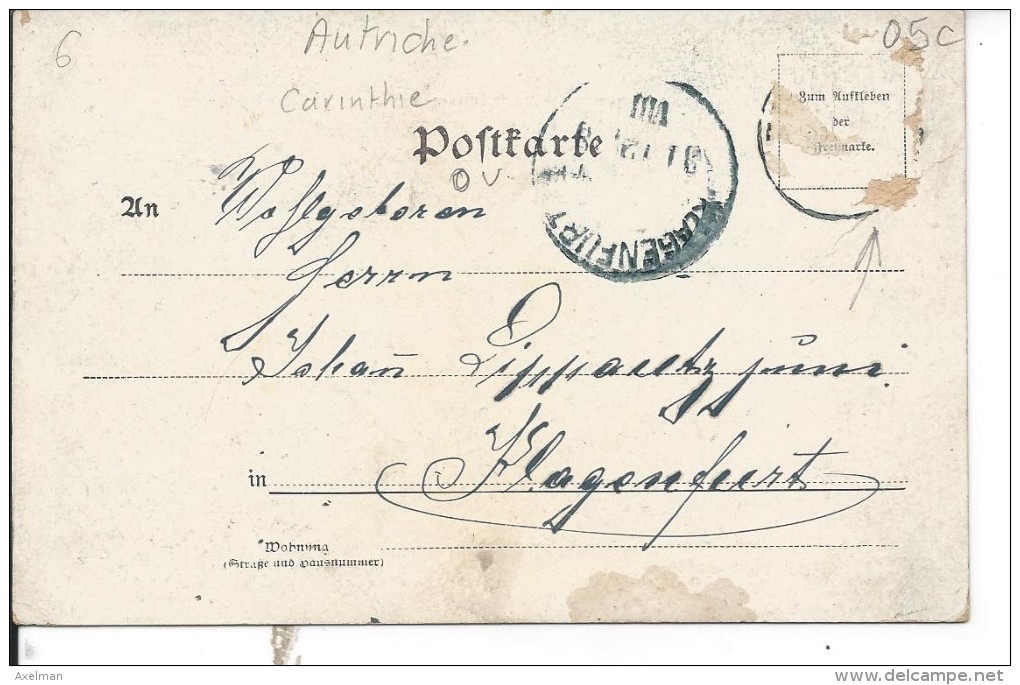 6
Autriche.
05c
Carinthie
Zum Aufkleben
der
Freimarke.
VIII
Postkarte
31 12
KLAGENFURT
An Wohlgeboren
Herrn
Johan̄
in Klagenfurt
Wohnung
(Straße und Hausnummer)
Axelman
www.delcampe.net